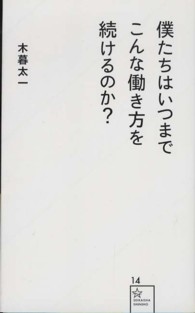 僕たちはいつまで
こんな働き方を
続けるのか？
木暮太一
14